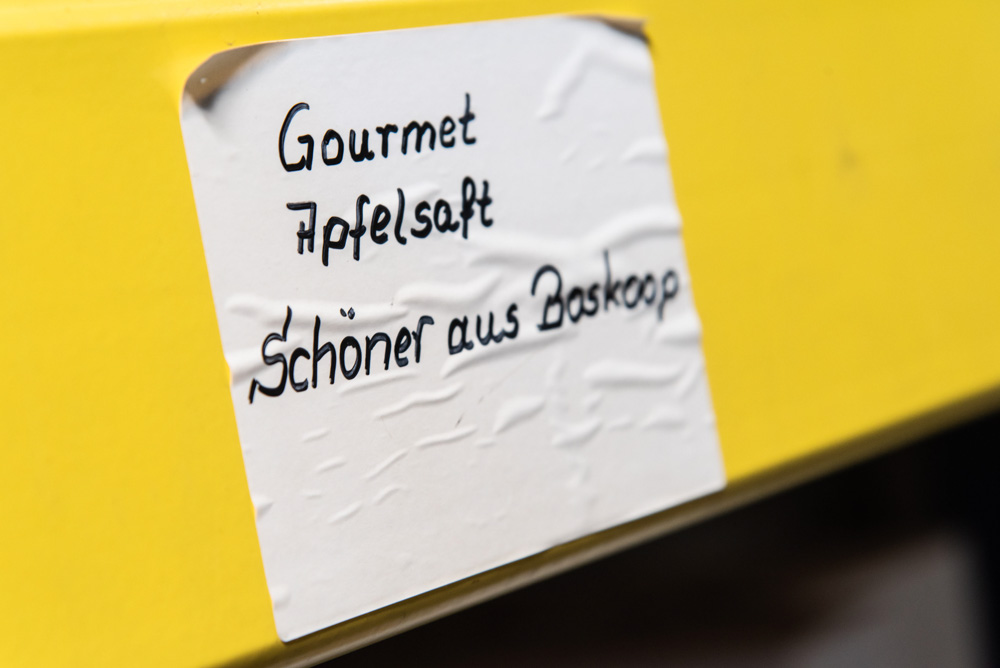 Gourmet
Apfelsaft
Schöner aus Boskoop